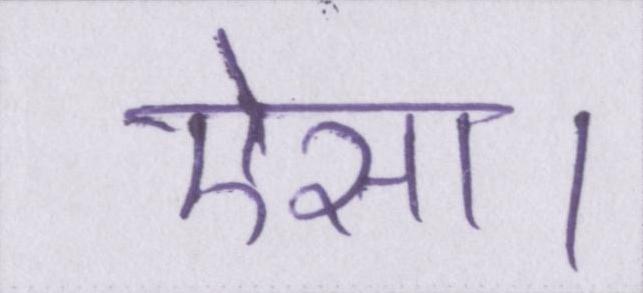 ऐसा।